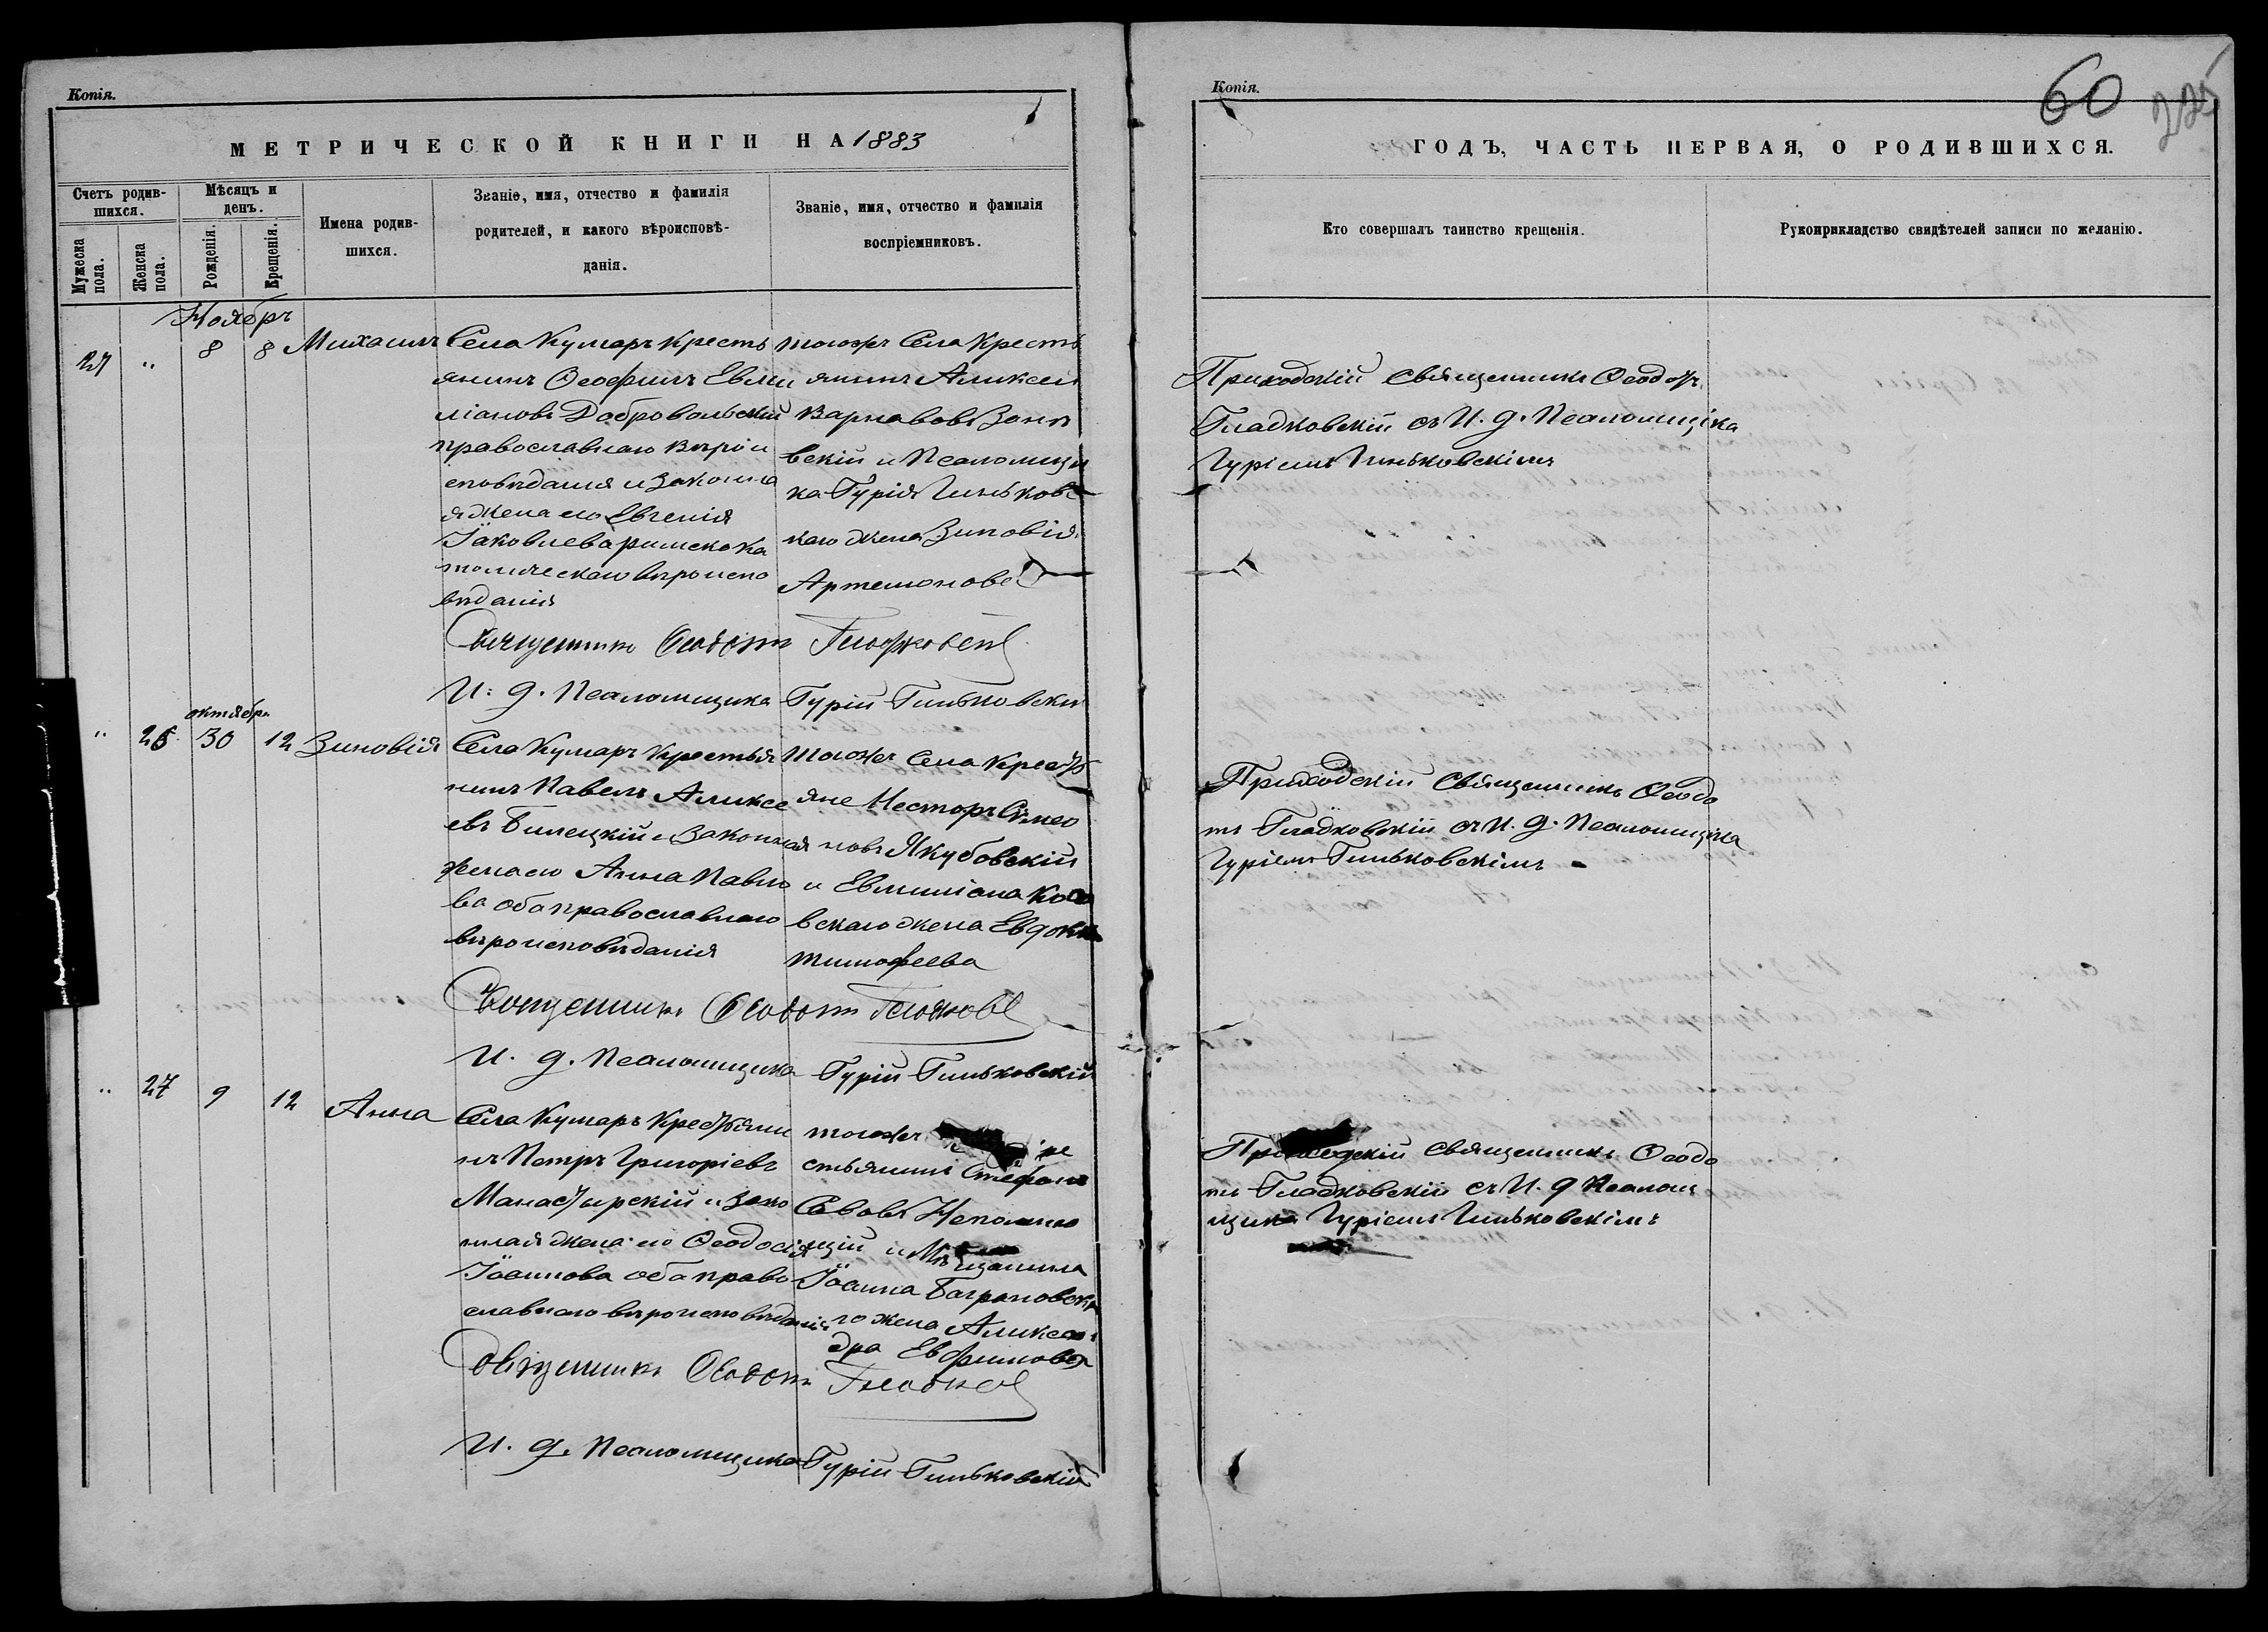 Копія.
МЕТРИЧЕСКОЙ КНИГИ НА 1883
Счетъ родив-
шихся.
Мѣсяцъ и
день.
Имена родив-
шихся.
Званіе, имя, отчество и фамилія
родителей, и какого вѣроисповѣ-
данія.
Званіе, имя, отчество и фамилія
воспріемниковъ.
Мужеска
пола.
Женска
пола.
Рожденія.
Крещенія.
Ноябрь
27 " 8 8 Михаилъ
Села Кумаръ кресть
янинъ Ѳеофилъ Евми
ліановъ Добровольскій
православнаго вѣрои
сповѣданія и законна
я жена его Евгенія
Іаковлева римскока
толическаго вѣроиспо
вѣданія
тогожъ Села Кресть
янинъ Аликсѣй
Варнавовъ
вскій и Псаломщи
ка Гурія Гиньковс
каго жена Зиновія
Артемонова
Священникъ Ѳеодотъ Гладковскій
И. д. Псаломщика Гурій Гиньковскій
" 26 октября 30 12 Зиновія
Села Кумаръ Крестья
нинъ Павелъ Аликсе
евъ Билецкій и законная
жена его Анна Павло
ва оба православнаго
вѣроисповѣданія
тогожъ Села Кресть
яне Несторъ Симео
новъ Якубовскій
и Евмиліана
вскаго жена Евдокія
Тимофеева
Священникъ Ѳеодотъ Гладковскій
И. д. Псаломщика Гурій Гиньковскій
" 27 9 12 Анна
Села Кумаръ Крестьяни
нъ Петръ Григоріевъ
Манастырскій и зако
нная жена его Ѳеодосія
Іоаннова оба право
славнаго вѣроисповѣданія
тогожъ
стьянинъ Стефанъ
Савовъ
щій и Мѣщанина
Іоанна Баграновска
го жена Аликсан
дра Евфимова
Священникъ Ѳеодотъ Гладковскій
И. д. Псаломщика Гурій Гиньковскій
Копія.
60
225
ГОДЪ, ЧАСТЬ ПЕРВАЯ, О РОДИВШИХСЯ.
Кто совершалъ таинство крещенія.
Рукоприкладство свидѣтелей записи по желанію.
Приходскій священникъ Ѳеодотъ
Гладковскій съ И. д. Псаломщика
Гуріемъ Гиньковскимъ
Приходскій священникъ Ѳеодо
тъ Гладковскій съ И. д. Псаломщика
Гуріемъ Гиньковскимъ
Приходскій священникъ Ѳеодо
тъ Гладковскій съ И. д Псалом
щика Гуріемъ Гиньковскимъ